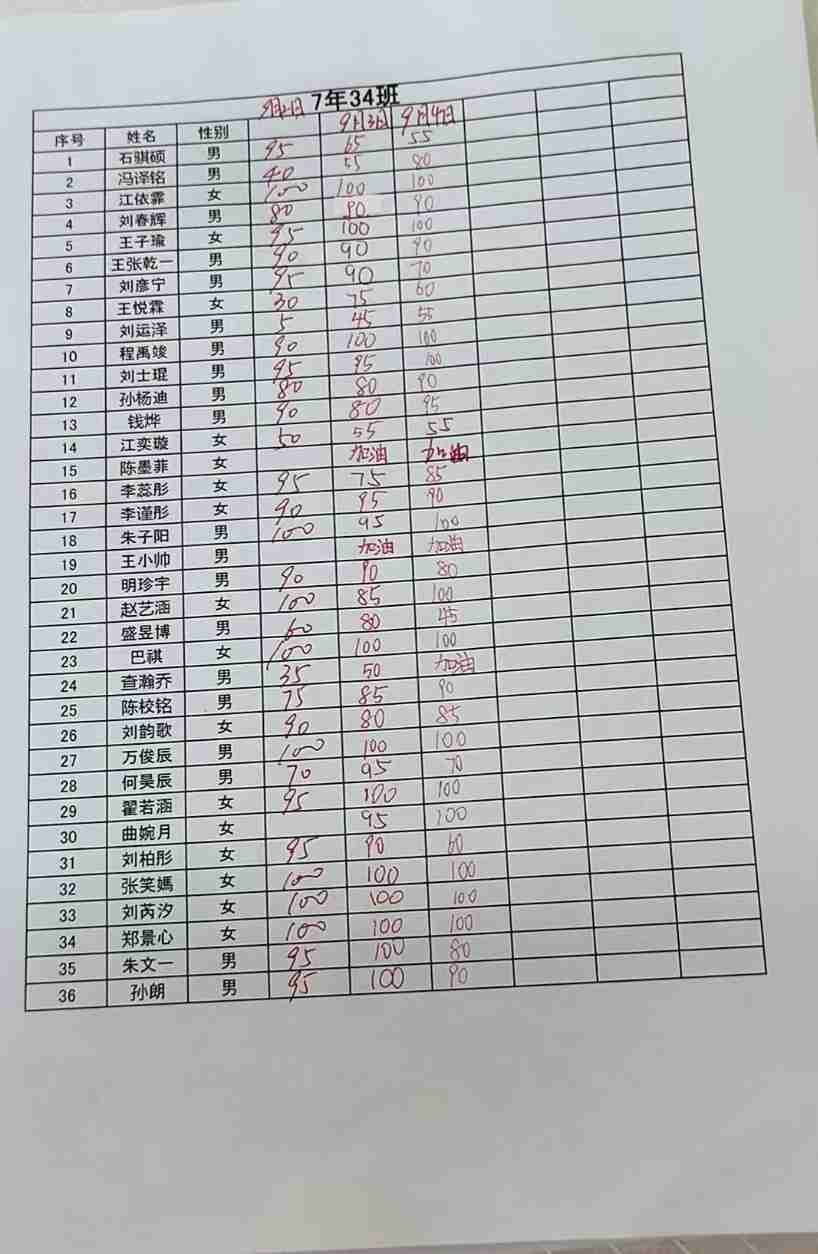 7年34班
序号 姓名 性别 9月2日 9月3日 9月4日
1 石骐硕 男 95 65 55
2 冯译铭 男 40 55 80
3 江依霏 女 100 100 100
4 刘春辉 男 80 90 90
5 王子瑜 女 95 100 100
6 王张乾一 男 90 90 90
7 刘彦宁 男 95 90 70
8 王悦霖 女 30 75 60
9 刘运泽 男 5 45 55
10 程禹竣 男 90 100 100
11 刘士琨 男 95 95 100
12 孙杨迪 男 80 80 90
13 钱烨 男 90 80 95
14 江奕璇 女 50 55 55
15 陈墨菲 女 加油 加油
16 李蕊彤 女 95 75 85
17 李谨彤 女 90 95 90
18 朱子阳 男 100 95 100
19 王小帅 男 加油 加油
20 明珍宇 男 90 90 80
21 赵艺涵 女 100 85 100
22 盛昱博 男 60 80 45
23 巴祺 女 100 100 100
24 查瀚乔 男 35 50 加油
25 陈校铭 男 75 85 90
26 刘韵歌 女 90 80 85
27 万俊辰 男 100 100 100
28 何昊辰 男 70 95 70
29 翟若涵 女 95 100 100
30 曲婉月 女 95 100
31 刘柏彤 女 95 90 60
32 张笑嫣 女 100 100 100
33 刘芮汐 女 100 100 100
34 郑景心 女 100 100 100
35 朱文一 男 95 100 80
36 孙朗 男 95 100 90